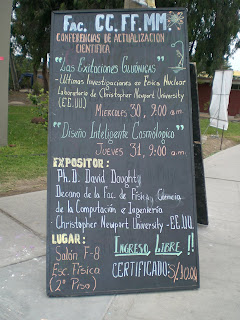 FAC. CC.FF.MM.
CONFERENCIAS DE ACTUALIZACIÓN
CIENTÍFICA
"Las Exitaciones Gluónicas"
- Ultimas Investigaciones en Física Nuclear
Laboratorio de Christopher Newport University
(EE.UU.)
MIERCOLES 30, 9:00 a.m.
"Diseño Inteligente Cosmológico"
JUEVES 31, 9:00 a.m.
EXPOSITOR:
Ph.D. David Doughty
Decano de la Fac. de Física, Ciencia
de la Computación e Ingeniería
Christopher Newport University - EE.UU.
LUGAR:
Salón F-8
Esc. Física
(2º Piso)
INGRESO LIBRE!!
CERTIFICADO: S/.10.00